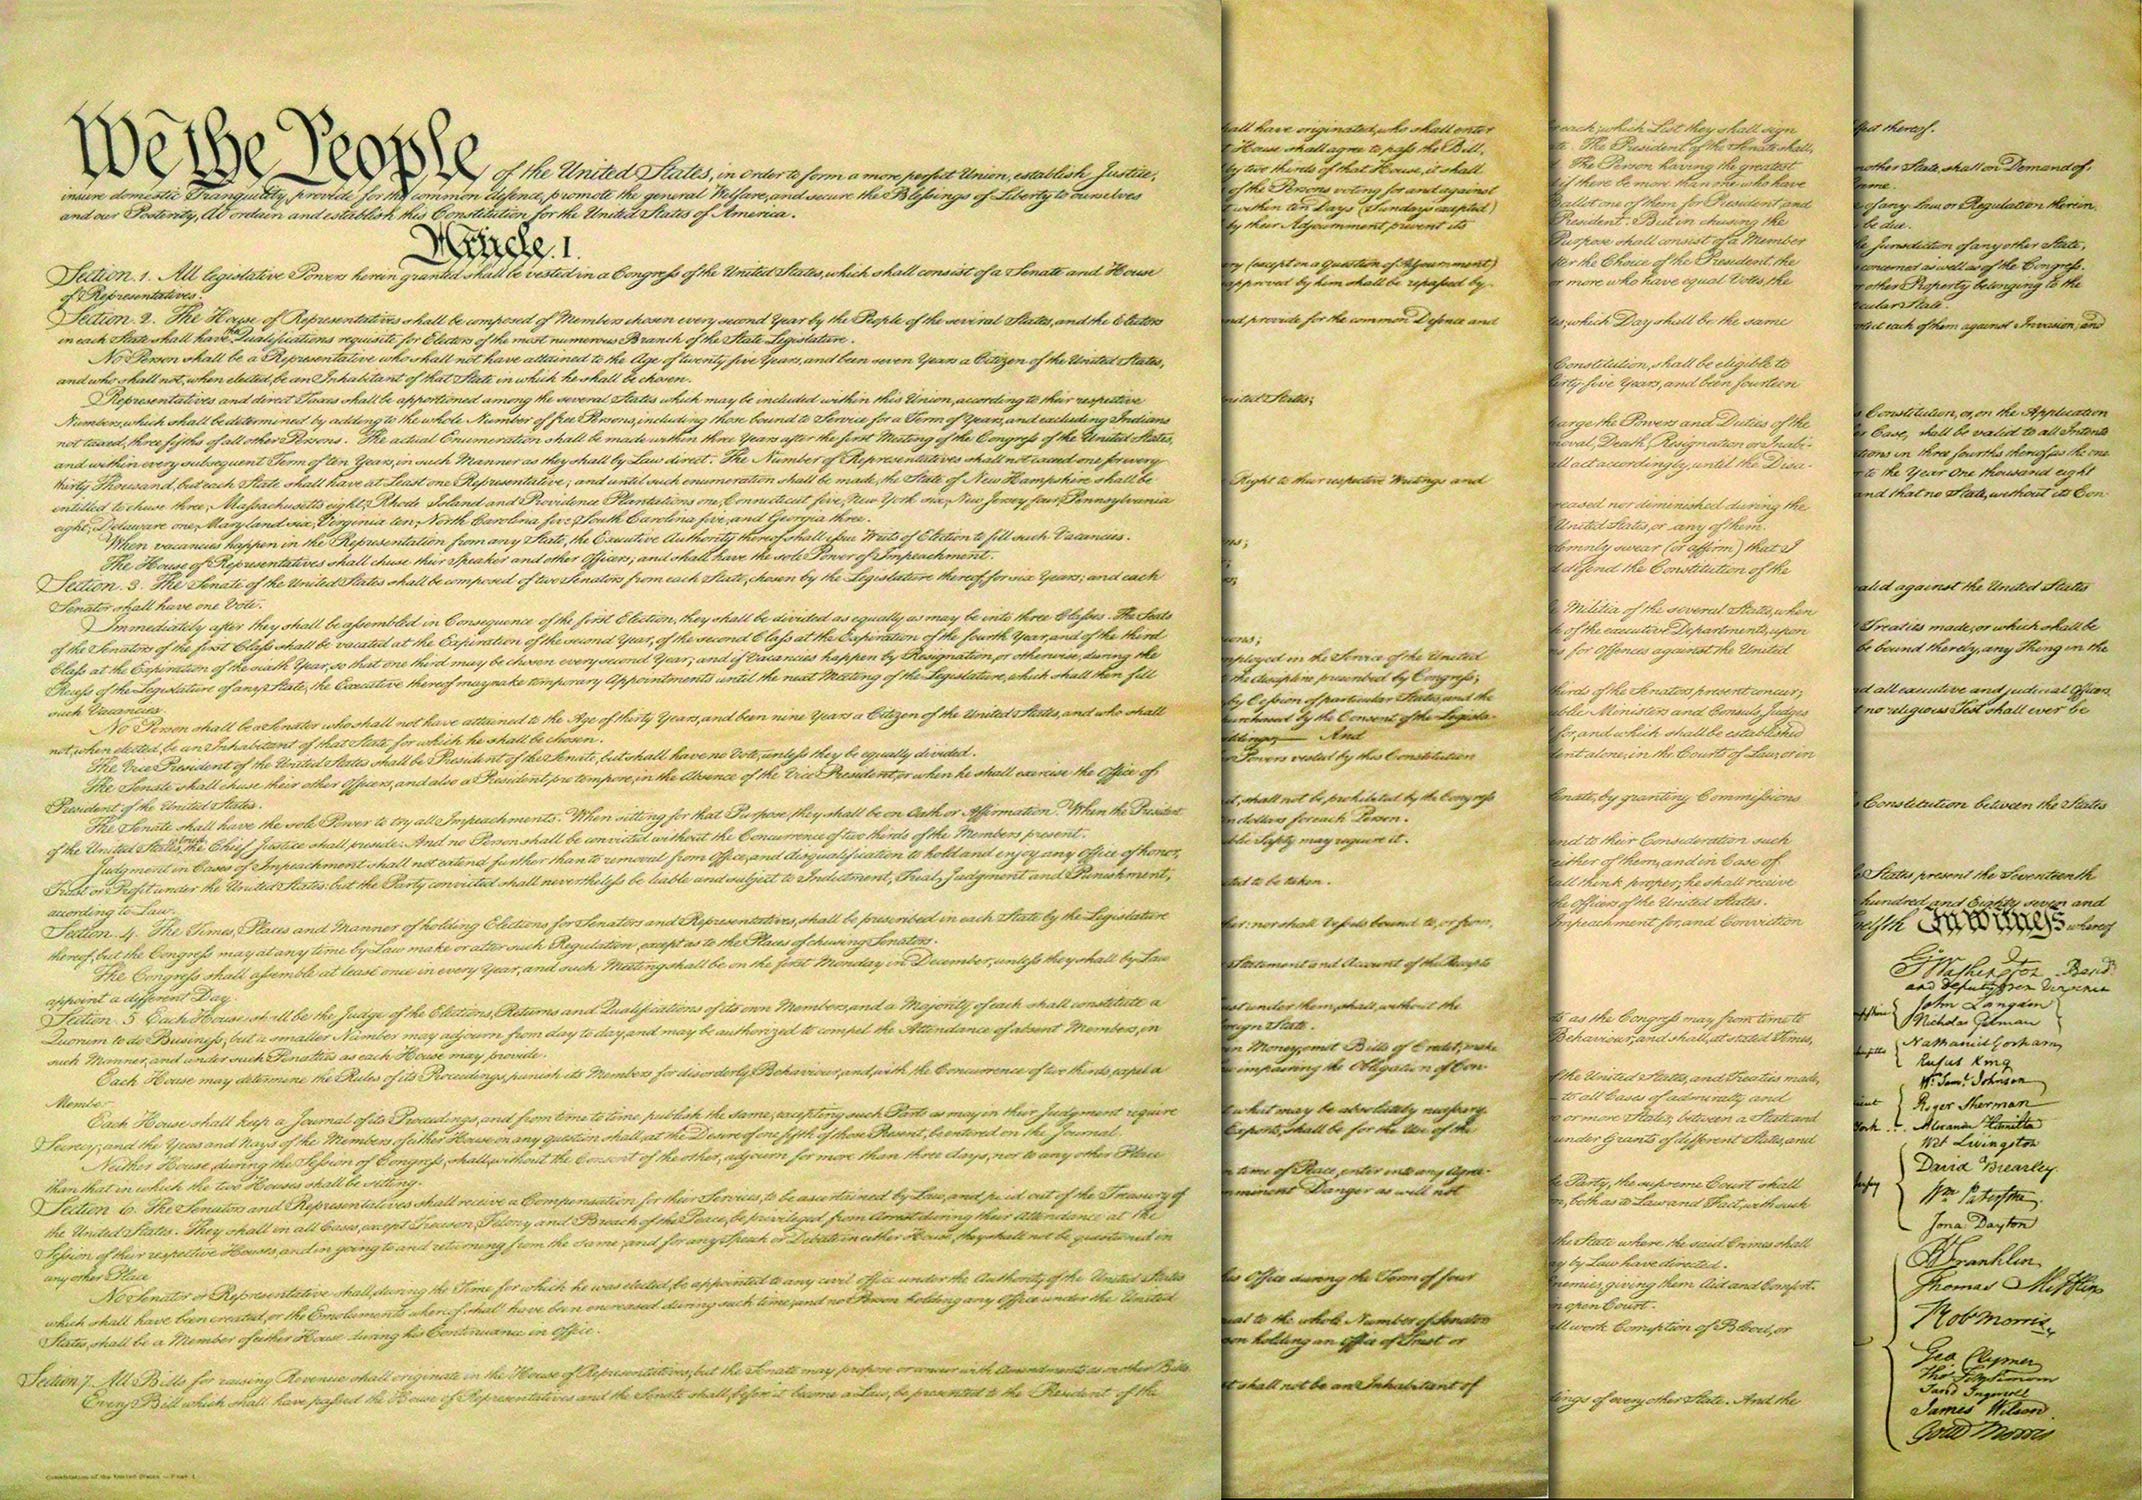 We the People of the United States, in order to form a more perfect Union, establish Justice,
insure domestic Tranquility, provide for the common defence, promote the general Welfare, and secure the Blessings of Liberty to ourselves
and our Posterity, do ordain and establish this Constitution for the United States of America.
Article. I.
Section. 1. All legislative Powers herein granted shall be vested in a Congress of the United States, which shall consist of a Senate and House
of Representatives.
Section. 2. The House of Representatives shall be composed of Members chosen every second Year by the People of the several States, and the Electors
in each State shall have the Qualifications requisite for Electors of the most numerous Branch of the State Legislature.
No Person shall be a Representative who shall not have attained to the Age of twenty five Years, and been seven Years a Citizen of the United States,
and who shall not, when elected, be an Inhabitant of that State in which he shall be chosen.
Representatives and direct Taxes shall be apportioned among the several States which may be included within this Union, according to their respective
Numbers, which shall be determined by adding to the whole Number of free Persons, including those bound to Service for a Term of Years, and excluding Indians
not taxed, three fifths of all other Persons. The actual Enumeration shall be made within three Years after the first Meeting of the Congress of the United States,
and within every subsequent Term of ten Years, in such Manner as they shall by Law direct. The Number of Representatives shall not exceed one for every
thirty Thousand, but each State shall have at Least one Representative; and until such enumeration shall be made, the State of New Hampshire shall be
entitled to chuse three, Massachusetts eight, Rhode Island and Providence Plantations one, Connecticut five, New York six, New Jersey four, Pennsylvania
eight, Delaware one, Maryland six, Virginia ten, North Carolina five, South Carolina five, and Georgia three.
When vacancies happen in the Representation from any State, the Executive Authority thereof shall issue Writs of Election to fill such Vacancies.
The House of Representatives shall chuse their Speaker and other Officers; and shall have the sole Power of Impeachment.
Section. 3. The Senate of the United States shall be composed of two Senators from each State, chosen by the Legislature thereof, for six Years; and each
Senator shall have one Vote.
Immediately after they shall be assembled in Consequence of the first Election, they shall be divided as equally as may be into three Classes. The Seats
of the Senators of the first Class shall be vacated at the Expiration of the second Year, of the second Class at the Expiration of the fourth Year, and of the third
Class at the Expiration of the sixth Year, so that one third may be chosen every second Year; and if Vacancies happen by Resignation, or otherwise, during the
Recess of the Legislature of any State, the Executive thereof may make temporary Appointments until the next Meeting of the Legislature, which shall then fill
such Vacancies.
No Person shall be a Senator who shall not have attained to the Age of thirty Years, and been nine Years a Citizen of the United States, and who shall
not, when elected, be an Inhabitant of that State for which he shall be chosen.
The Vice President of the United States shall be President of the Senate, but shall have no Vote, unless they be equally divided.
The Senate shall chuse their other Officers, and also a President pro tempore, in the Absence of the Vice President, or when he shall exercise the Office of
President of the United States.
The Senate shall have the sole Power to try all Impeachments. When sitting for that Purpose, they shall be on Oath or Affirmation. When the President
of the United States is tried, the Chief Justice shall preside: And no Person shall be convicted without the Concurrence of two thirds of the Members present.
Judgment in Cases of Impeachment shall not extend further than to removal from Office, and disqualification to hold and enjoy any Office of honor,
Trust or Profit under the United States: but the Party convicted shall nevertheless be liable and subject to Indictment, Trial, Judgment and Punishment,
according to Law.
Section. 4. The Times, Places and Manner of holding Elections for Senators and Representatives, shall be prescribed in each State by the Legislature
thereof; but the Congress may at any time by Law make or alter such Regulation, except as to the Places of chusing Senators.
The Congress shall assemble at least once in every Year, and such Meeting shall be on the first Monday in December, unless they shall by Law
appoint a different Day.
Section. 5. Each House shall be the Judge of the Elections, Returns and Qualifications of its own Members, and a Majority of each shall constitute a
Quorum to do Business; but a smaller Number may adjourn from day to day, and may be authorized to compel the Attendance of absent Members, in
such Manner, and under such Penalties as each House may provide.
Each House may determine the Rules of its Proceedings, punish its Members for disorderly Behaviour, and, with the Concurrence of two thirds, expel a
Member.
Each House shall keep a Journal of its Proceedings, and from time to time publish the same, excepting such Parts as may in their Judgment require
Secrecy; and the Yeas and Nays of the Members of either House on any question shall, at the Desire of one fifth of those Present, be entered on the Journal.
Neither House, during the Session of Congress, shall, without the Consent of the other, adjourn for more than three days, nor to any other Place
than that in which the two Houses shall be sitting.
Section. 6. The Senators and Representatives shall receive a Compensation for their Services, to be ascertained by Law, and paid out of the Treasury of
the United States. They shall in all Cases, except Treason, Felony and Breach of the Peace, be privileged from Arrest during their Attendance at the
Session of their respective Houses, and in going to and returning from the same; and for any Speech or Debate in either House, they shall not be questioned in
any other Place.
No Senator or Representative shall, during the Time for which he was elected, be appointed to any civil Office under the Authority of the United States
which shall have been created, or the Emoluments whereof shall have been encreased during such time; and no Person holding any Office under the United
States, shall be a Member of either House during his Continuance in Office.
Section 7. All Bills for raising Revenue shall originate in the House of Representatives; but the Senate may propose or concur with Amendments as on other Bills.
Every Bill which shall have passed the House of Representatives and the Senate, shall, before it become a Law, be presented to the President of the
Constitution of the United States — Page 1
hall have originated, who shall enter
t House shall agree to pass the Bill,
by two thirds of that House, it shall
of the Persons voting for and against
t within ten Days (Sundays excepted)
by their Adjournment prevent its
ry (except on a question of Adjournment)
approved by him shall be repassed by
nd provide for the common Defence and
nited States;
Right to their respective Writings and
ns;
ions;
mployed in the Service of the United
the discipline prescribed by Congress;
by Cession of particular States, and the
urchased by the Consent of the Legisla-
ildings; And
r Powers vested by this Constitution
it, shall not be prohibited by the Congress
n dollars for each Person.
blic Safety may require it.
cted to be taken.
her: nor shall Vessels bound to, or from,
Statement and Account of the Receipts
ust under them, shall, without the
reign State.
in Money; emit Bills of Credit; make
w impairing the Obligation of Con-
t what may be absolutely necessary
Exports, shall be for the Use of the
n time of Peace, enter into any Agree-
mminent Danger as will not
his Office during the Term of four
ual to the whole Number of Senators
son holding an Office of Trust or
t shall not be an Inhabitant of
r each; which List they shall sign
te. The President of the Senate shall,
d. The Person having the greatest
d if there be more than one who have
Ballot one of them for President; and
President. But in chusing the
Purpose shall consist of a Member
fter the Choice of the President, the
or more who have equal Votes, the
es; which Day shall be the same
Constitution, shall be eligible to
hirty five Years, and been fourteen
harge the Powers and Duties of the
moval, Death, Resignation or Inabi-
ll act accordingly, until the Disa-
reased nor diminished during the
United States, or any of them.
olemnly swear (or affirm) that I
d defend the Constitution of the
e Militia of the several States, when
h of the executive Departments, upon
s for Offences against the United
thirds of the Senators present concur;
ublic Ministers and Consuls, Judges
for, and which shall be established
dent alone, in the Courts of Law, or in
Senate, by granting Commissions
end to their Consideration such
either of them, and in Case of
all think proper; he shall receive
the officers of the United States.
Impeachment for, and Conviction
ts as the Congress may from time to
Behaviour, and shall, at stated Times,
f the United States, and Treaties made,
to all Cases of admiralty and
o or more States; between a State and
under Grants of different States, and
be Party, the supreme Court shall
on, both as to Law and Fact, with such
the State where the said Crimes shall
ay by Law have directed.
nemies, giving them Aid and Comfort.
n open Court.
all work Corruption of Blood, or
dings of every other State. And the
fect thereof.
nother State, shall on Demand of
rime.
of any Law or Regulation therein,
be due.
he Jurisdiction of any other State,
concerned as well as of the Congress.
r other Property belonging to the
icular State.
otect each of them against Invasion, and
s Constitution, or, on the Application
er Case, shall be valid to all Intents
tions in three fourths thereof, as the one
r to the Year One thousand eight
and that no State, without its Con-
valid against the United States
Treaties made, or which shall be
be bound thereby, any Thing in the
d all executive and judicial Officers,
t no religious Test shall ever be
Constitution between the States
States present the Seventeenth
hundred and Eighty seven and
welfth In Witness whereof
G. Washington Presidt.
and deputy from Virginia
John Langdon
Nicholas Gilman
Nathaniel Gorham
Rufus King
Wm. Saml. Johnson
Roger Sherman
York Alexander Hamilton
Wil Livingston
David Brearley
Wm Paterson.
Jona: Dayton
B Franklin
Thomas Mifflin
Rob Morris
Geo. Clymer
Tho. FitzSimons
Jared Ingersoll
James Wilson.
Gouv Morris